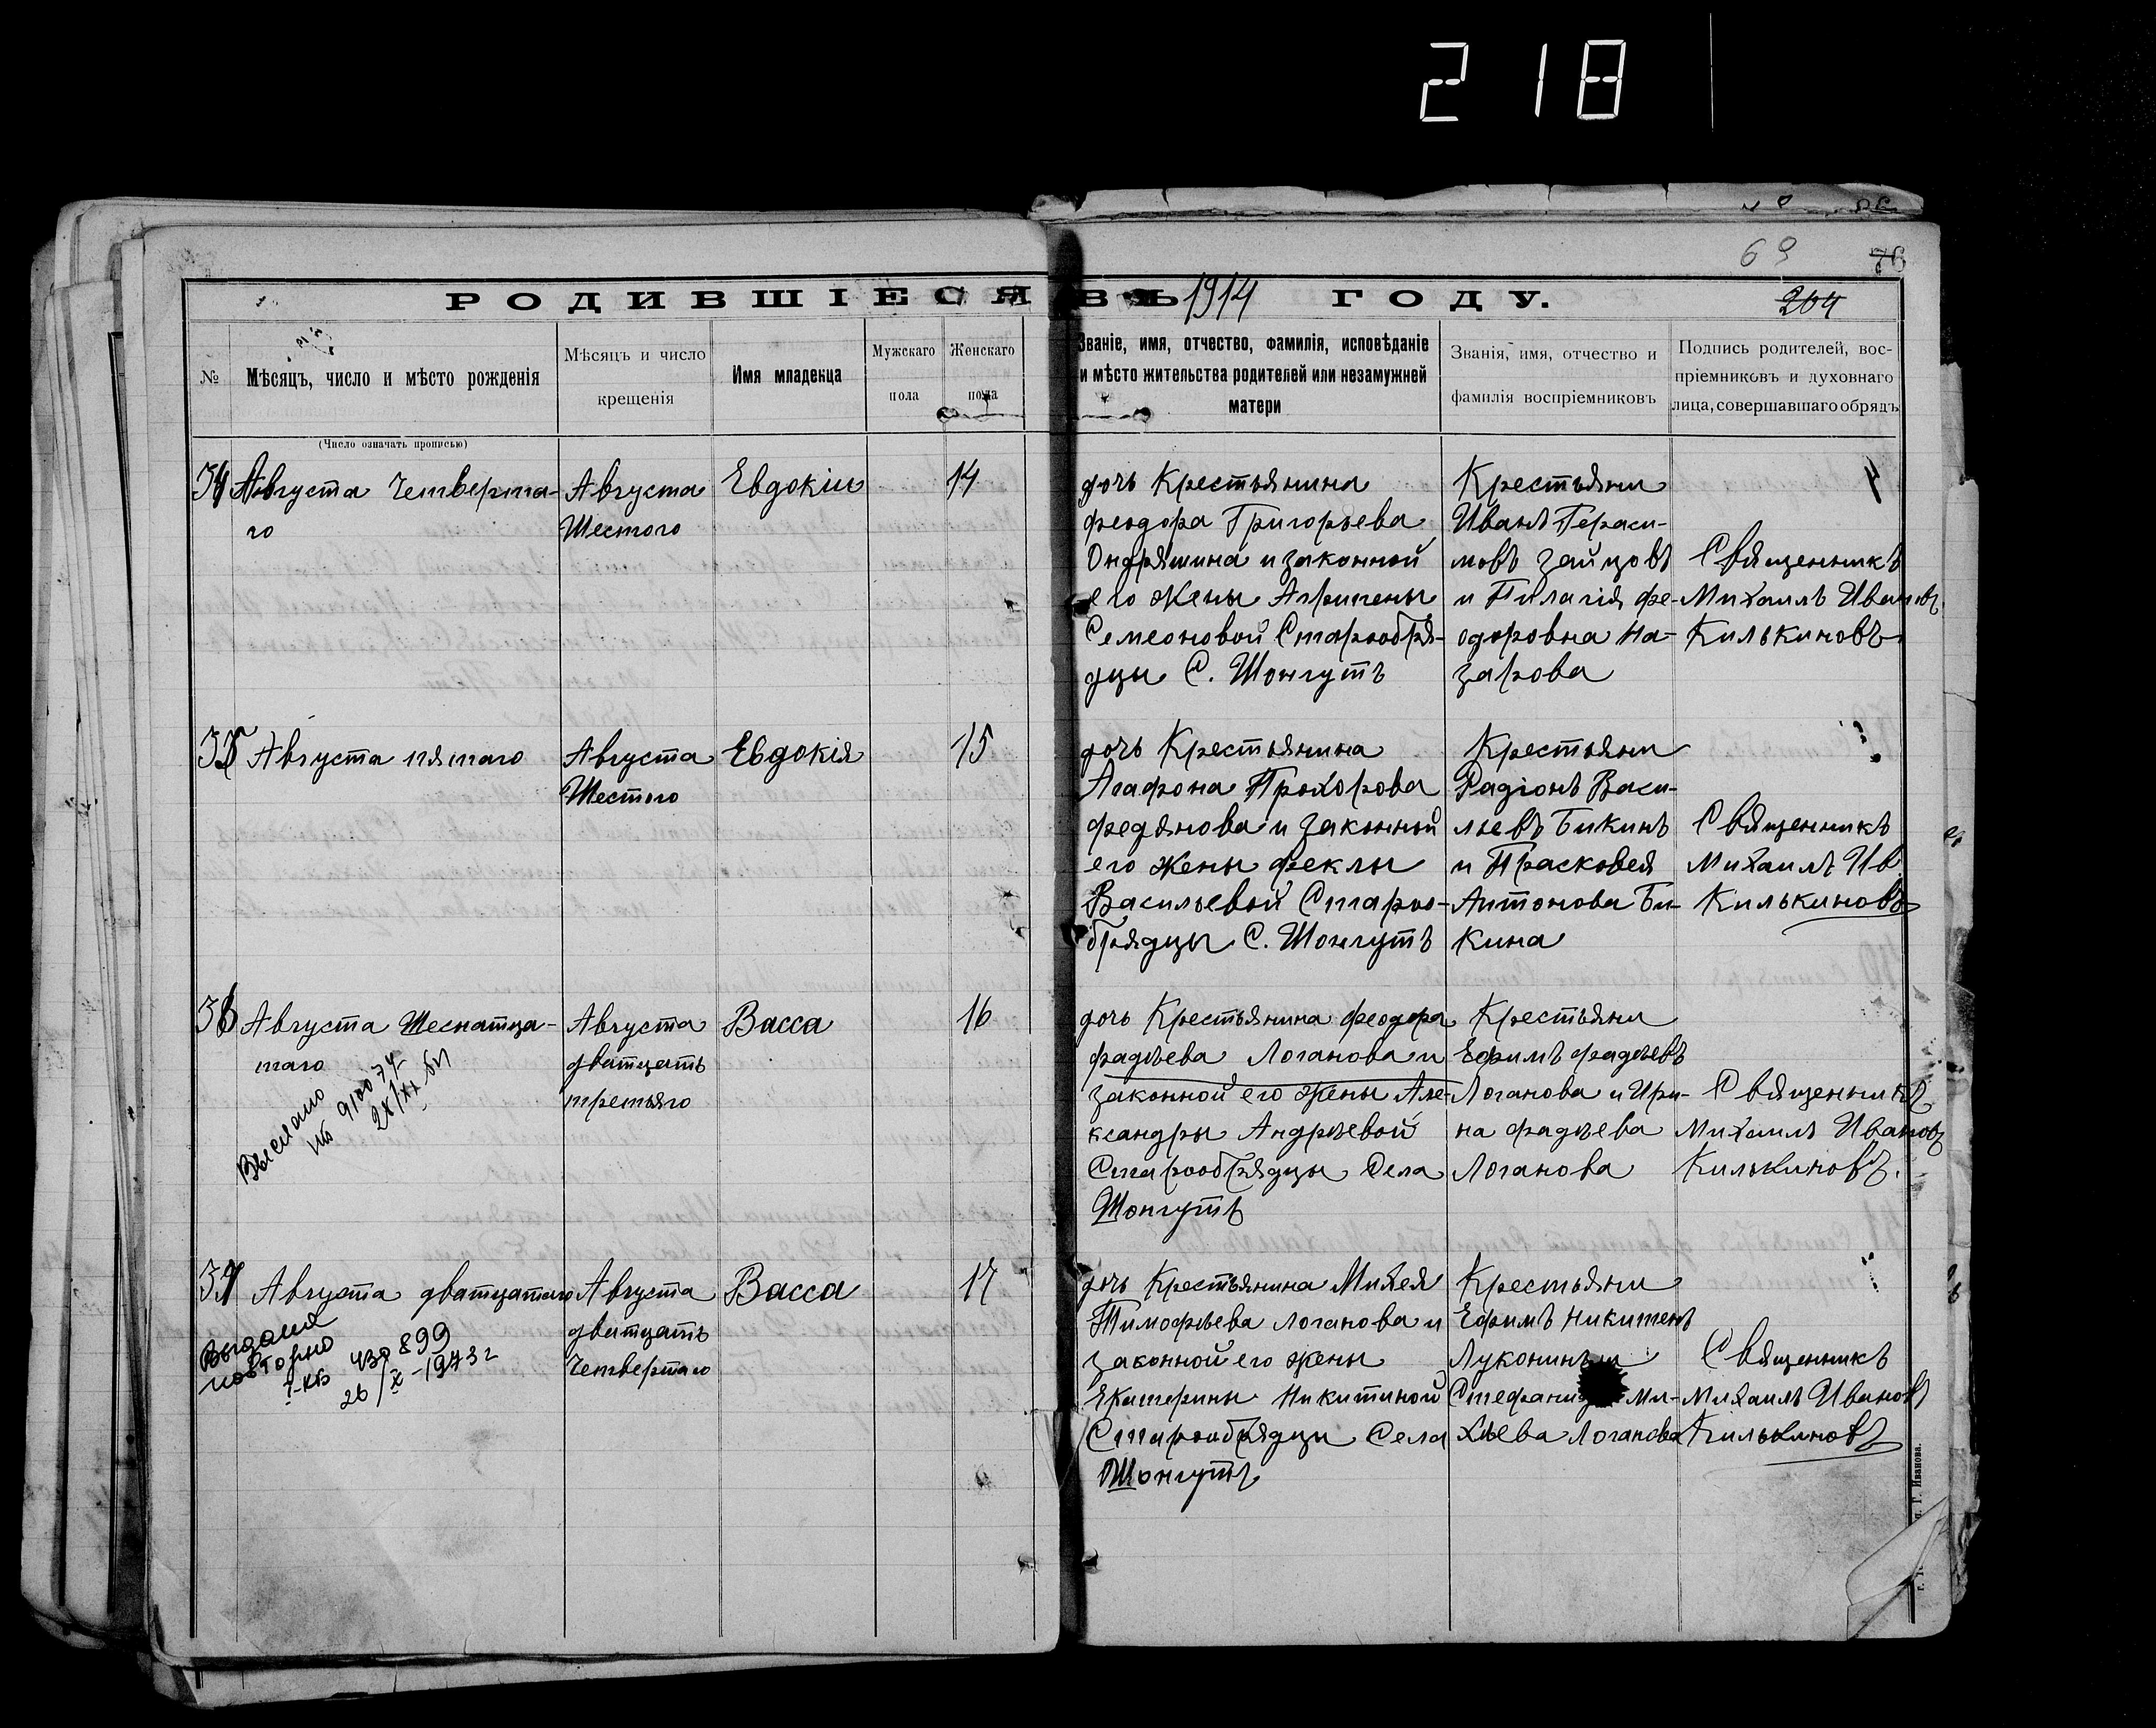 218
69
76
204
РОДИВШІЕСЯ ВЪ 1914 ГОДУ.
№
Мѣсяцъ, число и мѣсто рожденія
(Число означать прописью)
Мѣсяцъ и число
крещенія
Имя младенца
Мужскаго
пола
Женскаго
пола
Званіе, имя, отчество, фамилія, исповѣданіе
и мѣсто жительства родителей или незамужней
матери
Званія, имя, отчество и
фамилія воспріемниковъ
Подпись родителей, вос-
пріемниковъ и духовнаго
лица, совершавшаго обрядъ
34
Августа Четверта-
го
Августа
Шестого
Евдокіи
14
дочь Крестьянина
феодора Григорьева
Ондряшина и законной
его жены Агрипены
Семеоновой Старообря-
дцы С. Шонгутъ
Крестьяни
Иванъ Гераси-
мовъ Зайцовъ
и Пилагія фе-
одоровна На-
зарова
Священникъ
Михаилъ Ивановъ
Килькиновъ
35
Августа пятаго
Августа
Шестого
Евдокія
15
дочь Крестьянина
Агафона Прохорова
федянова и законной
его жены феклы
Васильевой Староо-
брядцы С. Шонгутъ
Крестьяни
Радіонъ Васи-
льевъ Бикинъ
и Прасковея
Антонова Би-
кина
Священникъ
Михаилъ Ив
Килькиновъ
36
Августа Шеснатца-
таго
Выслано
910074
Августа
дватцать
третьяго
Васса
16
дочь Крестьянина феодора
фадѣева Логанова и
законной его жены Але-
ксандры Андрѣевой
Старообрядцы Села
Шонгутъ
Крестьяни
Ефимъ фадѣевъ
Логанова и Ири-
на фадѣева
Логанова
Священникъ
Михаилъ Ивановъ
Килькиновъ.
37
Августа дватцатаго
Выдана
повторно
430899
26/X-1973г
Августа
дватцать
Четвертаго
Васса
17
дочь Крестьянина Михея
Тимофѣева Логанова и
законной его жены
Екатерины Никитиной
Старообрядцы Села
Шонгутъ
Крестьяни
Ефимъ Никитенъ
Луконинъ и
Стефанида Ми-
хѣева Логанова
Священникъ
Михаилъ Ивановъ
Килькиновъ
Г. Иванова.